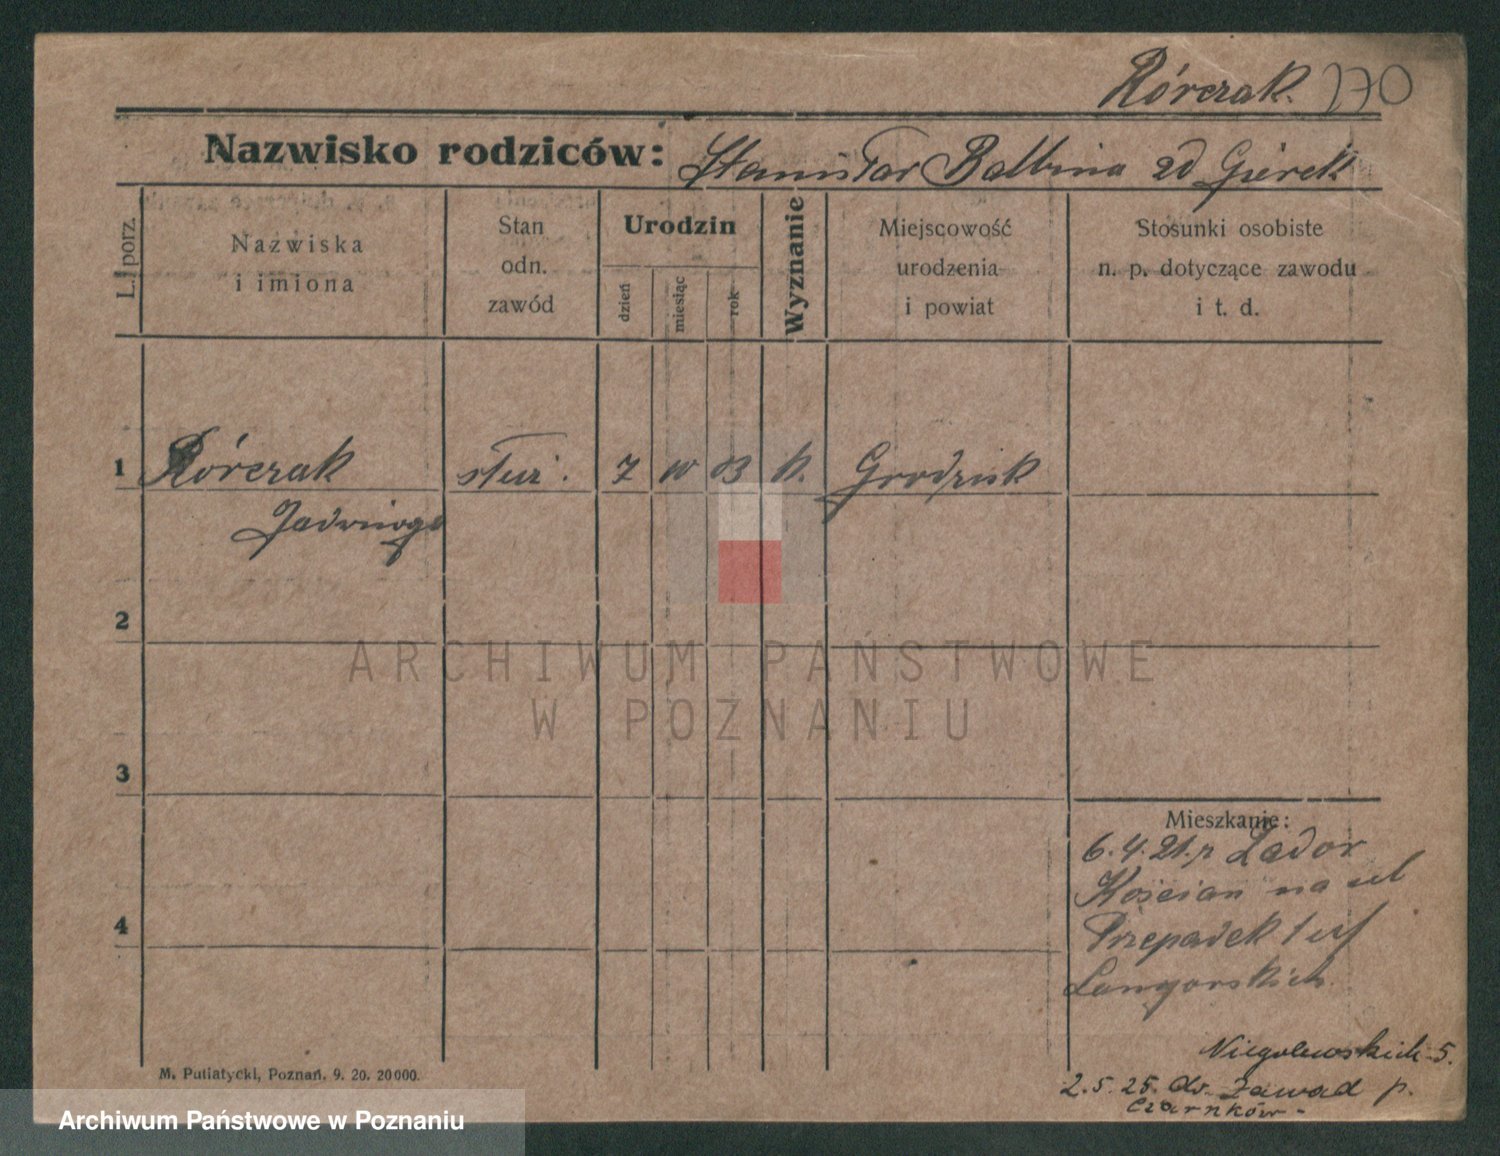 Rórczak. 170
Nazwisko rodziców: Stanisław Balbina zd Gierek
L. porz.
Nazwiska
i imiona
Stan
odn.
zawód
Urodzin
dzień
miesiąc
rok
Wyznanie
Miejscowość
urodzenia
i powiat
Stosunki osobiste
n. p. dotyczące zawodu
i t. d.
1 Rórczak służ. 7 10 03 k. Grodzisk
Jadwiga
2
ARCHIWUM PAŃSTWOWE
W POZNANIU
3
Mieszkanie:
6.4.21. z
Kościan na ul
4
Przepadek 1 u
Niegolewskich 5.
2.5.25. do Zawad p.
Czarnków-
M. Putiatycki, Poznań. 9. 20. 20000.
Archiwum Państwowe w Poznaniu